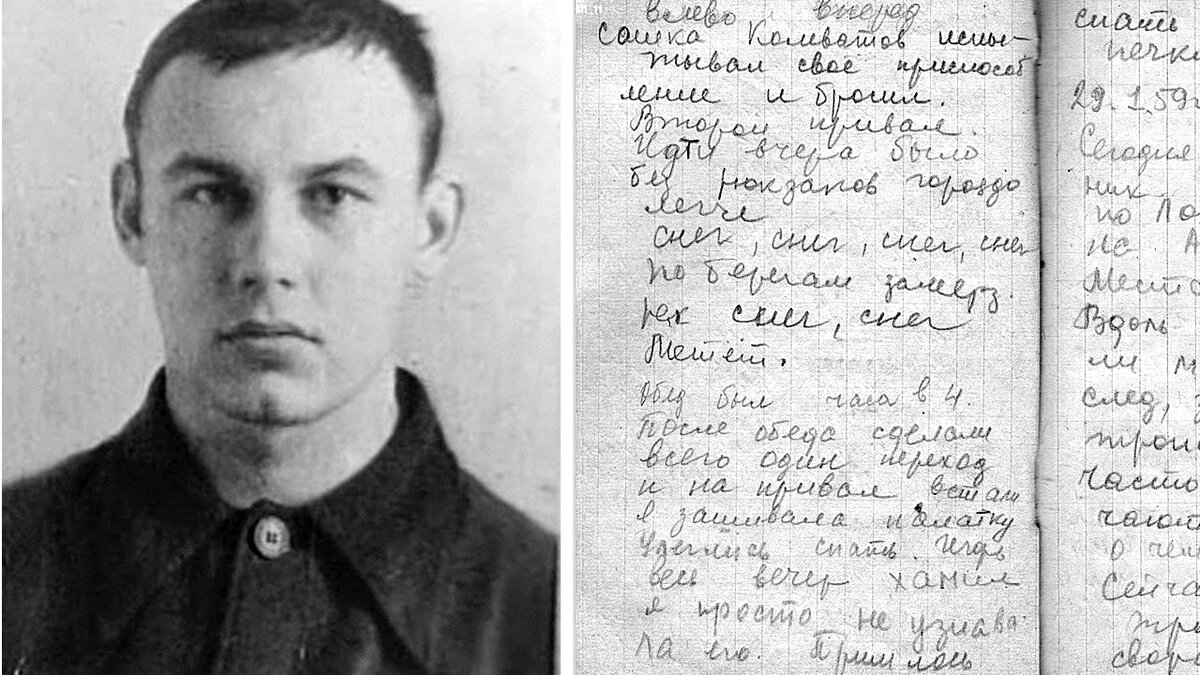 влево вперед
Сашка Колеватов испы-
тывал свое приспособ
ление и бросил.
Второй привал.
Идти вчера было
без рюкзаков гораздо
легче
снег, снег, снег, снег
по берегам замерз.
рек снег, снег
Метет.
Обед был часа в 4.
После обеда сделали
всего один переход
и на привал встали
я зашивала палатку
Улеглись спать. Игорь
весь вечер хамил
я просто не узнава
ла его. Пришлось
спать
печк
29.1.59.
Сегодня
ник
по Ло
на А
Место
Вдоль
ли м
след,
троп
часто
чают
о чем
Сейча